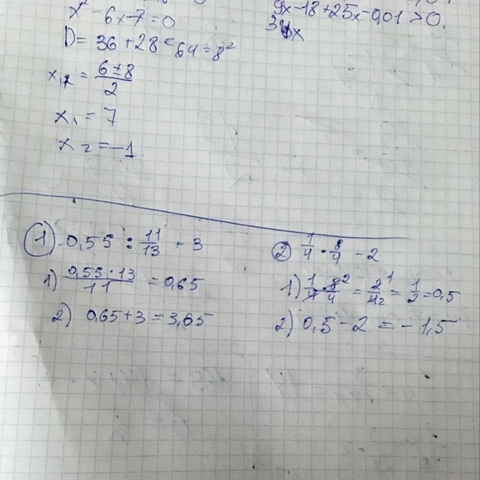 x² - 6x - 7 = 0
D = 36 + 28 = 64 = 8²
x₁,₂ = (6 ± 8)/2
x₁ = 7
x₂ = -1
9x - 18 + 25x - 0,01 > 0.
34x
1) -0,55 : 11/13 + 3
1) 0,55 · 13/11 = 0,65
2) 0,65 + 3 = 3,65
2) 1/4 · 8/4 - 2
1) 1/4 · 8²/4 = 2/4₂¹ = 1/2 = 0,5
2) 0,5 - 2 = -1,5